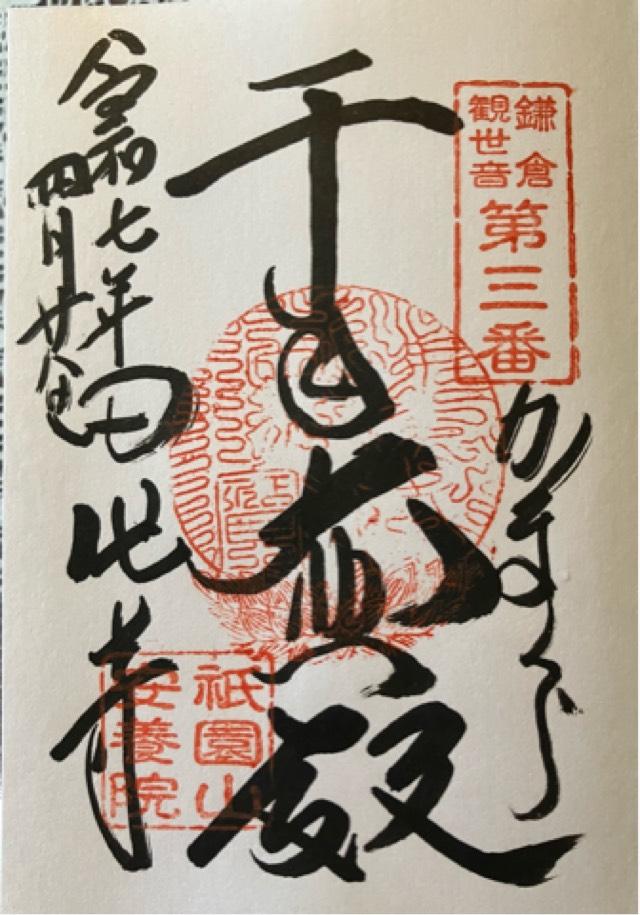 鎌倉
観世音
第三番
かまくら
千手 殿
令和七年
四月廿八日
田代寺
祇園山
安養院